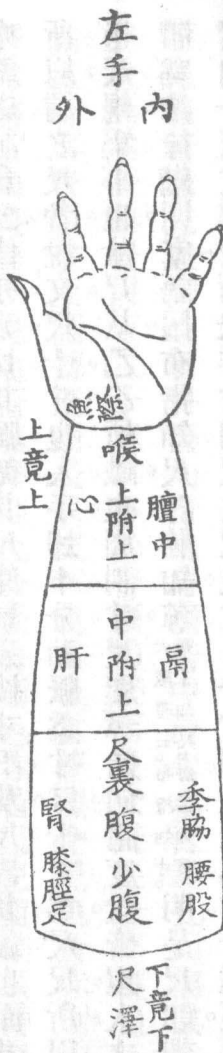 左手
內
外
魚際
喉
上竟上
膻中
上附上
心
鬲
中附上
肝
季脇 腰股
尺裏 腹 少腹
腎 膝脛足
下竟下
尺澤